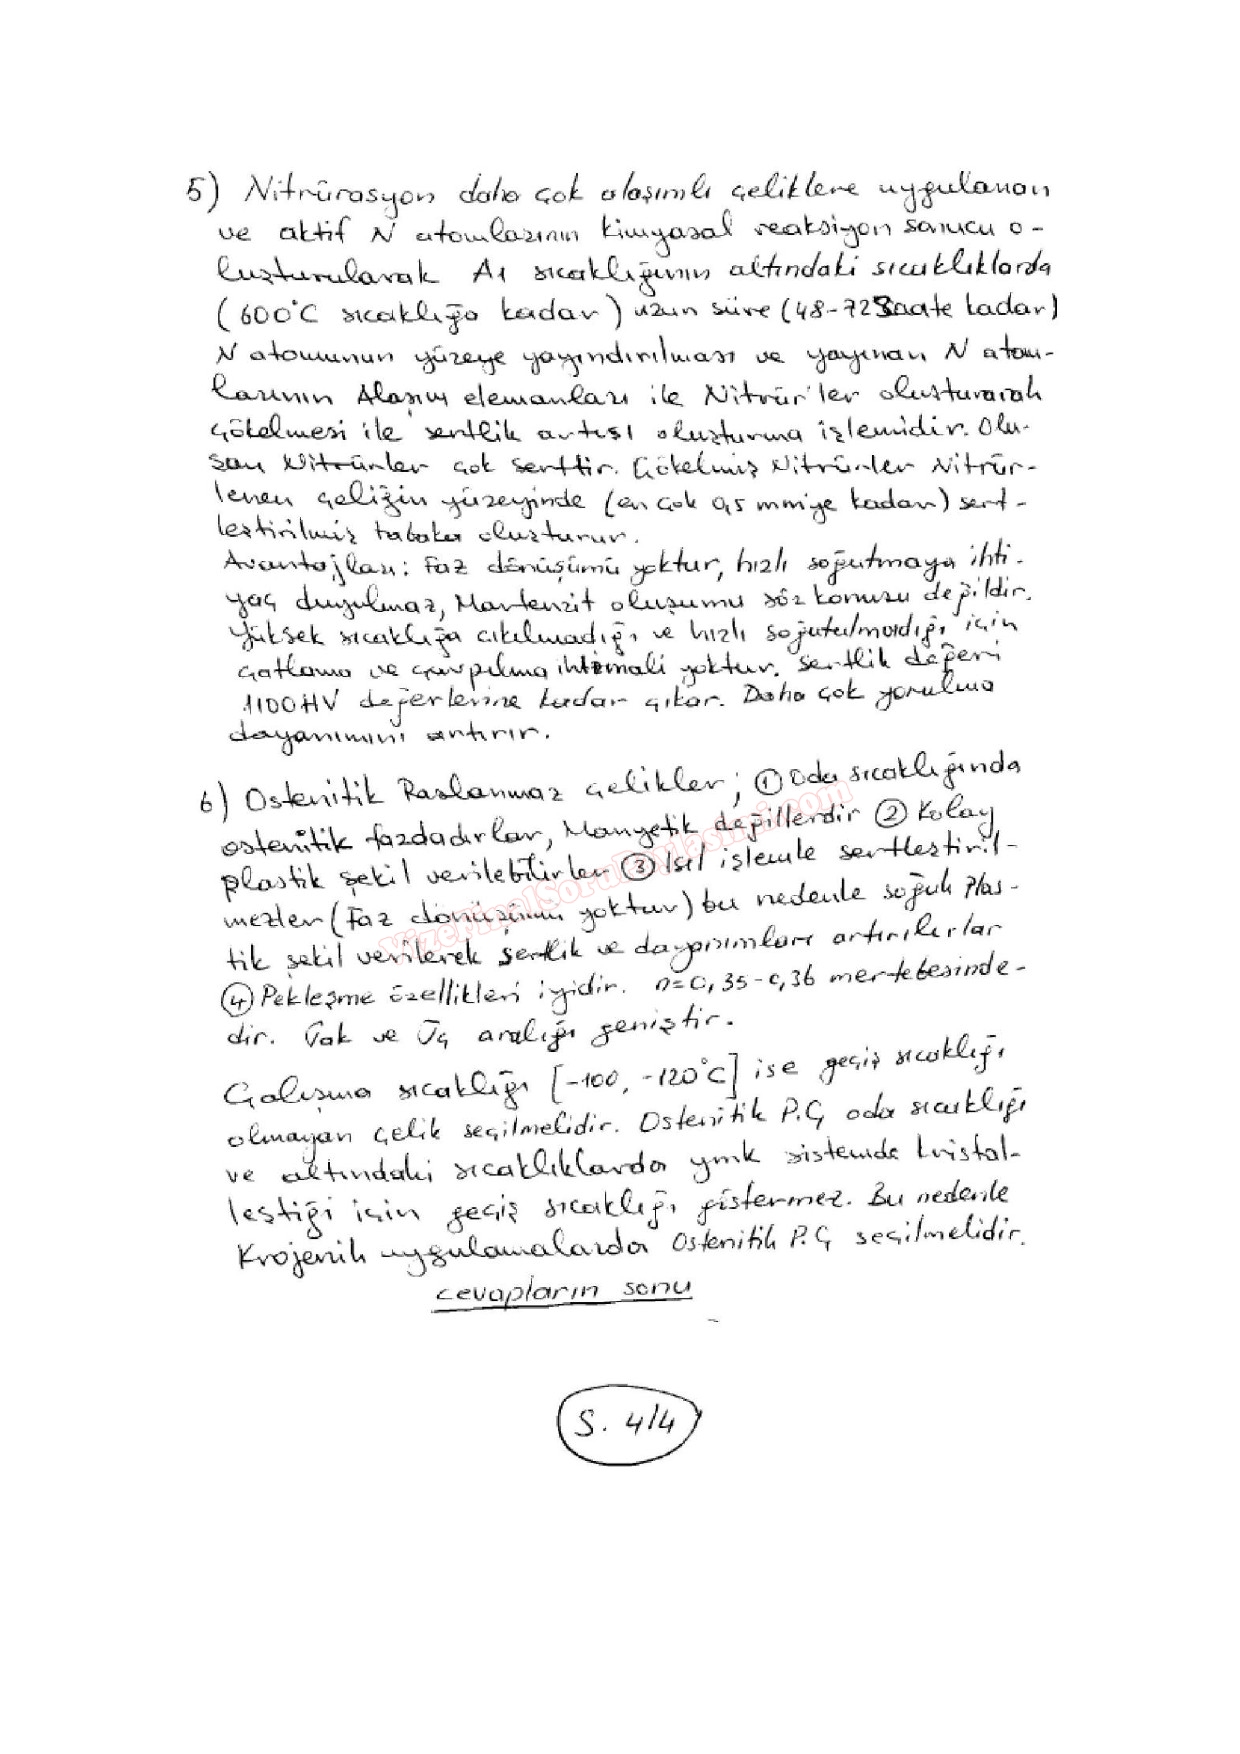 5) Nitrürasyon daha çok alaşımlı çeliklere uygulanan
ve aktif N atomlarının kimyasal reaksiyon sonucu o-
luşturularak A1 sıcaklığının altındaki sıcaklıklarda
(600°C sıcaklığa kadar) uzun süre (48-72 Saate kadar)
N atomunun yüzeye yayındırılması ve yayınan N atom-
larının Alaşım elemanları ile Nitrür'ler oluşturarak
çökelmesi ile sertlik artışı oluşturma işlemidir. Olu-
şan Nitrürler çok serttir. Çökelmiş Nitrürler Nitrür-
lenen çeliğin yüzeyinde (en çok 0,5 mm'ye kadar) sert-
leştirilmiş tabaka oluşturur.
Avantajları: Faz dönüşümü yoktur, hızlı soğutmaya ihti-
yaç duyulmaz, Martenzit oluşumu söz konusu değildir.
Yüksek sıcaklığa çıkılmadığı ve hızlı soğutulmadığı için
çatlama ve çarpılma ihtimali yoktur. Sertlik değeri
1100HV değerlerine kadar çıkar. Daha çok yorulma
dayanımını artırır.
6) Ostenitik Paslanmaz çelikler; ① Oda sıcaklığında
ostenitik fazdadırlar, Manyetik değillerdir ② Kolay
plastik şekil verilebilirler ③ Isıl işlemle sertleştiril-
mezler (Faz dönüşümü yoktur) bu nedenle soğuk Plas-
tik şekil verilerek sertlik ve dayanımları artırılırlar
④ Pekleşme özellikleri iyidir. n=0,35-0,36 mertebesinde-
dir. σak ve σç aralığı geniştir.
Çalışma sıcaklığı [-100, -120°C] ise geçiş sıcaklığı
olmayan çelik seçilmelidir. Ostenitik P.Ç oda sıcaklığı
ve altındaki sıcaklıklarda ymk sistemde kristal-
leştiği için geçiş sıcaklığı göstermez. Bu nedenle
Krojenik uygulamalarda Ostenitik P.Ç seçilmelidir.
cevapların sonu
S. 4/4
VizeFinalSoruPaylasimi.com